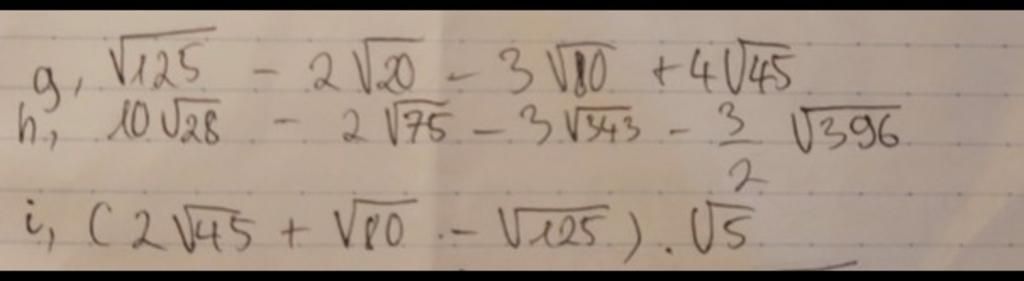 g, √125 - 2√20 - 3√80 + 4√45
h, 10√28 - 2√75 - 3√343 - 3/2 √396
i, (2√45 + √80 - √125) . √5